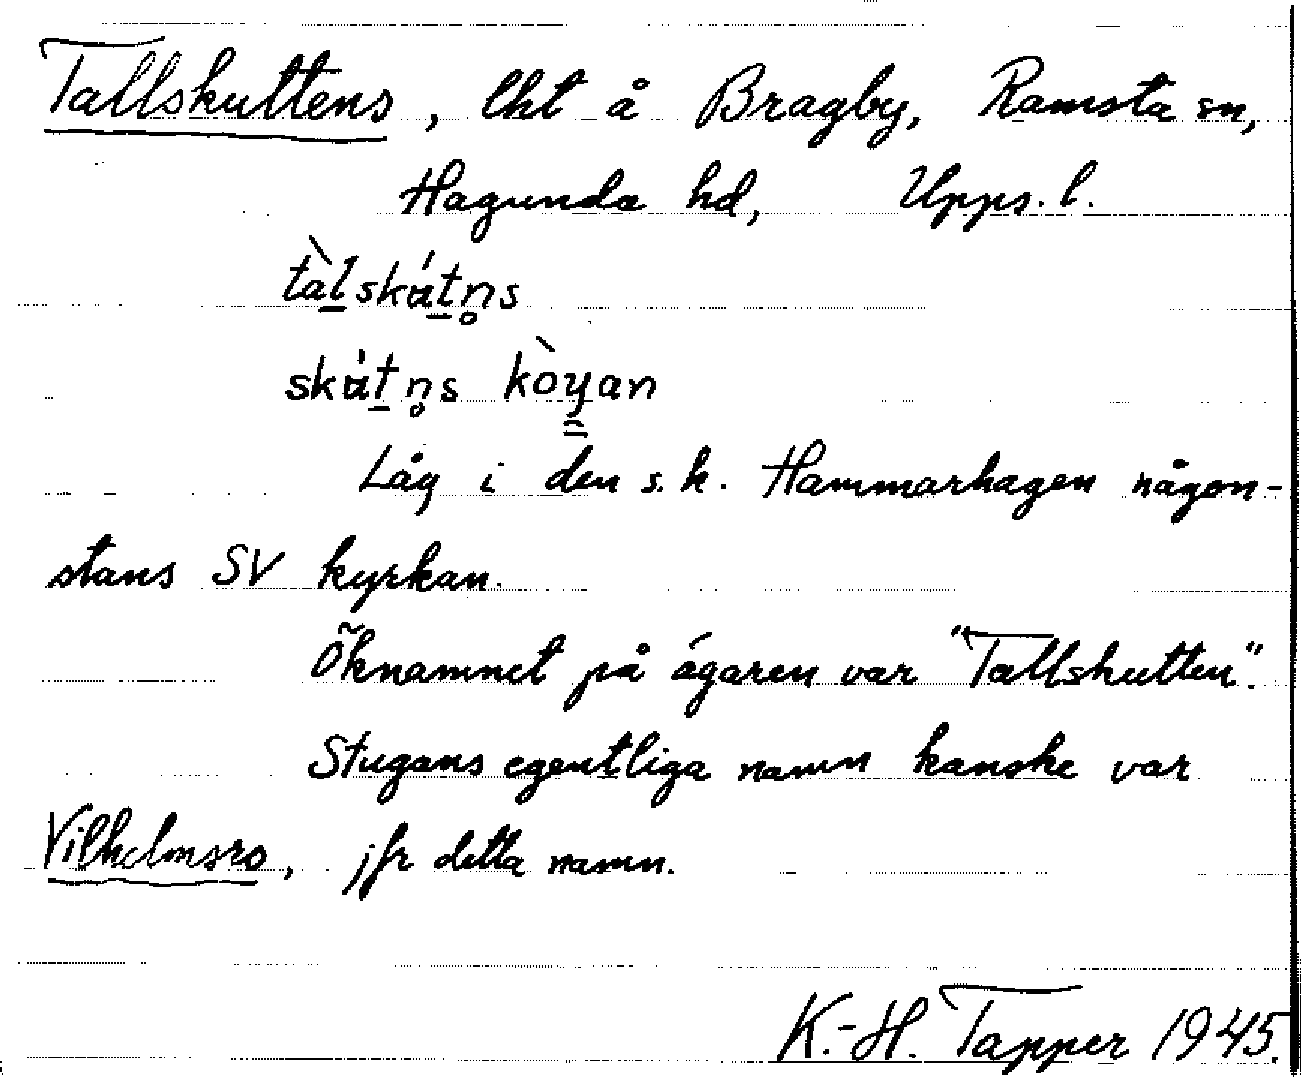 Tallskuttens, lht å Bragby, Ramsta sn,
Hagunda hd, Upps. l.
tàlskút̠n̥s
skút̠n̥s kòyan
Låg i den s.k. Hammarhagen någon-
stans SV kyrkan.
Öknamnet på ägaren var "Tallskutten".
Stugans egentliga namn kanske var
Vilhelmsro, jfr detta namn.
K.-H. Tapper 1945.